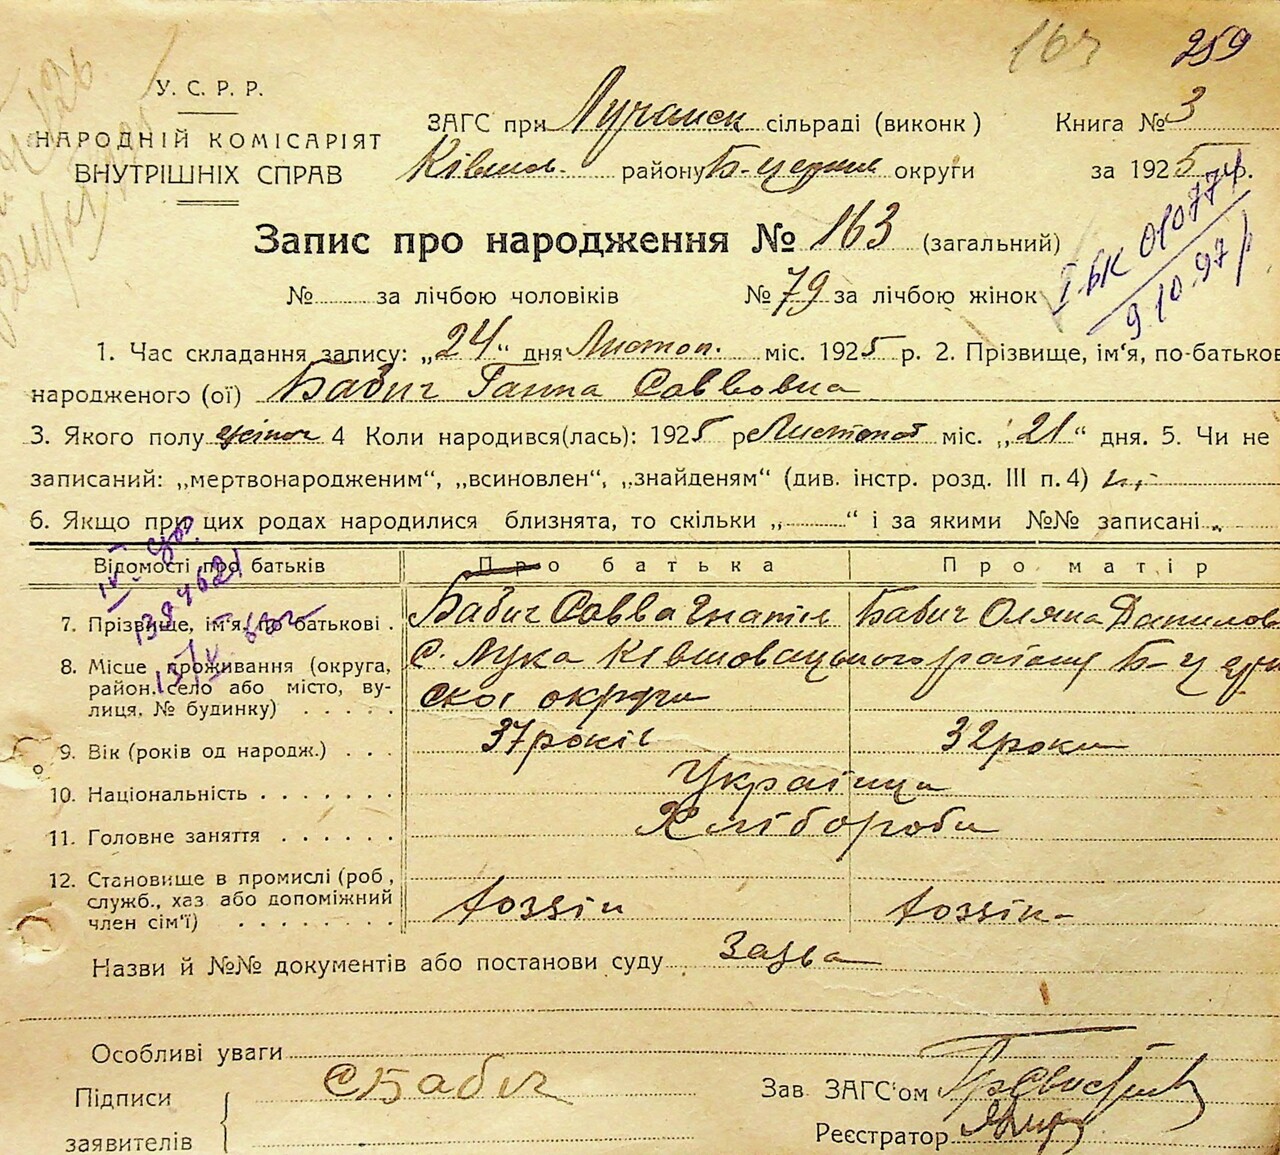 259
У. С. Р. Р.
НАРОДНІЙ КОМІСАРІЯТ
ВНУТРІШНІХ СПРАВ
ЗАГС при Лучанск сільраді (виконк)
Ківшов. району Б-церкив округи
Книга № 3
за 1925 р.
Запис про народження № 163 (загальний)
№ за лічбою чоловіків № 79 за лічбою жінок
І БК 010774
9.10.97 р
1. Час складання запису: „24“ дня Листоп. міс. 1925 р. 2. Прізвище, ім'я, по-батькові
народженого (ої) Бабич Ганна Саввовна
3. Якого полу жіноч 4 Коли народився(лась): 1925 р Листопад міс. „21“ дня. 5. Чи не
записаний: „мертвонародженим“, „всиновлен“, „знайденям“ (див. інстр. розд. III п. 4)
6. Якщо при цих родах народилися близнята, то скільки „ “ і за якими №№ записані
Відомості про батьків Про батька Про матір
7. Прізвище, ім'я, по батькові . Бабич Савва Гнатів Бабич Оляна Данилов
8. Місце проживання (округа, район, село або місто, вулиця, № будинку) . . . . . С. Лука Ківшовацького району Б-ц
ской округи
9. Вік (років од народж.) . . . 37 років 32 роки
10. Національність . . . . . . . Українці
11. Головне заняття . . . . . . Хлібороби
12. Становище в промислі (роб,
служб., хаз або допоміжний
член сім'ї) . . . . . . . Хоззіи Хоззік-
Назви й №№ документів або постанови суду Заява
Особливі уваги
Підписи
заявителів
СБабич
Зав ЗАГС'ом
Реєстратор